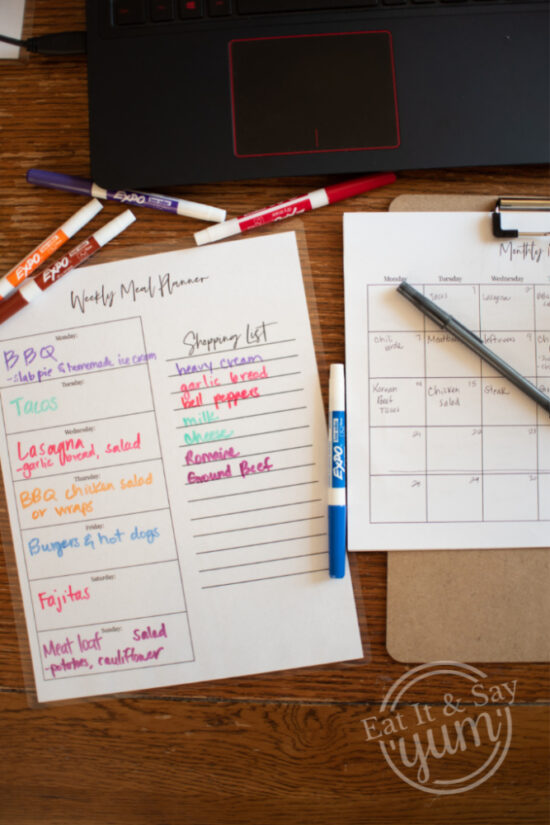 EXPO
EXPO
EXPO
EXPO
Weekly Meal Planner
Monday:
BBQ
-slab pie & homemade ice cream
Tuesday:
Tacos
Wednesday:
Lasagna
-garlic bread, salad
Thursday:
BBQ chicken salad
or wraps
Friday:
Burgers & hot dogs
Saturday:
Fajitas
Sunday:
Meat loaf salad
-potatoes, cauliflower
Shopping List
heavy cream
garlic bread
Bell peppers
milk
cheese
Romaine
Ground Beef
EXPO
Monthly
Monday Tuesday Wednesday
Tacos Lasagna
7 9
Meatballs leftovers
14 15
Korean Beef Tacos
Chicken salad
Steak
21 22 23
28 29 30
Eat It & Say
"yum"